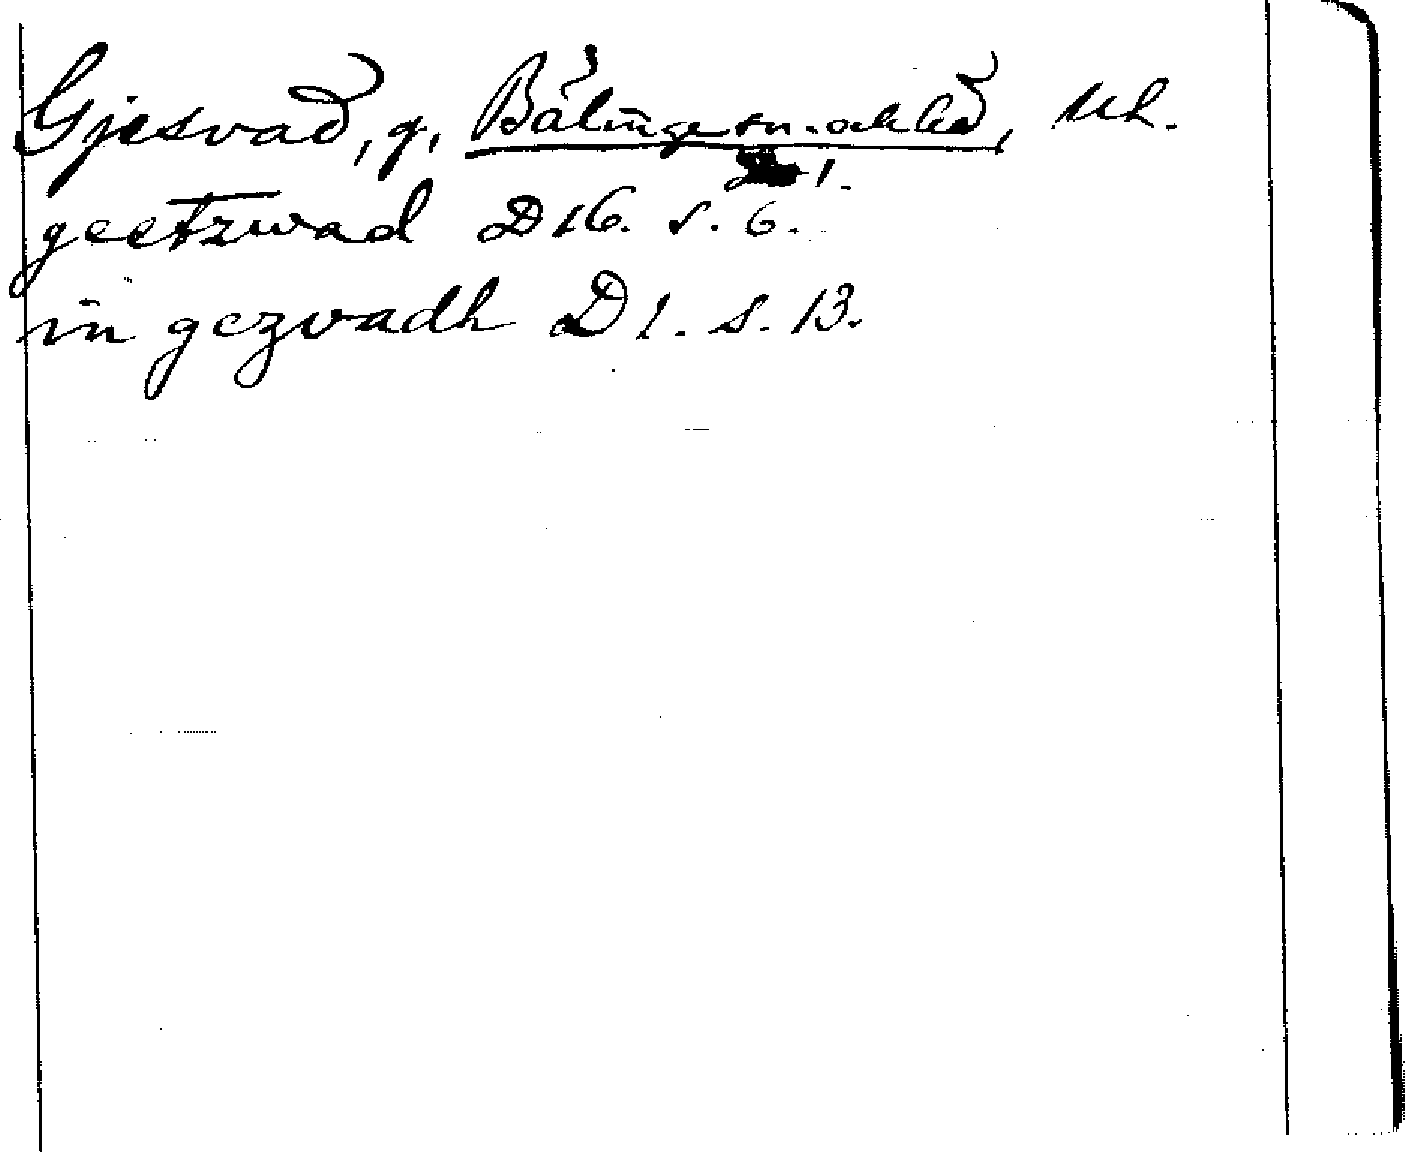 Gjesvad, g, Bälinge sn. o. hd, Ul.
geetzwad D 16. s. 6.
in gezvadh D 1. s. 13.